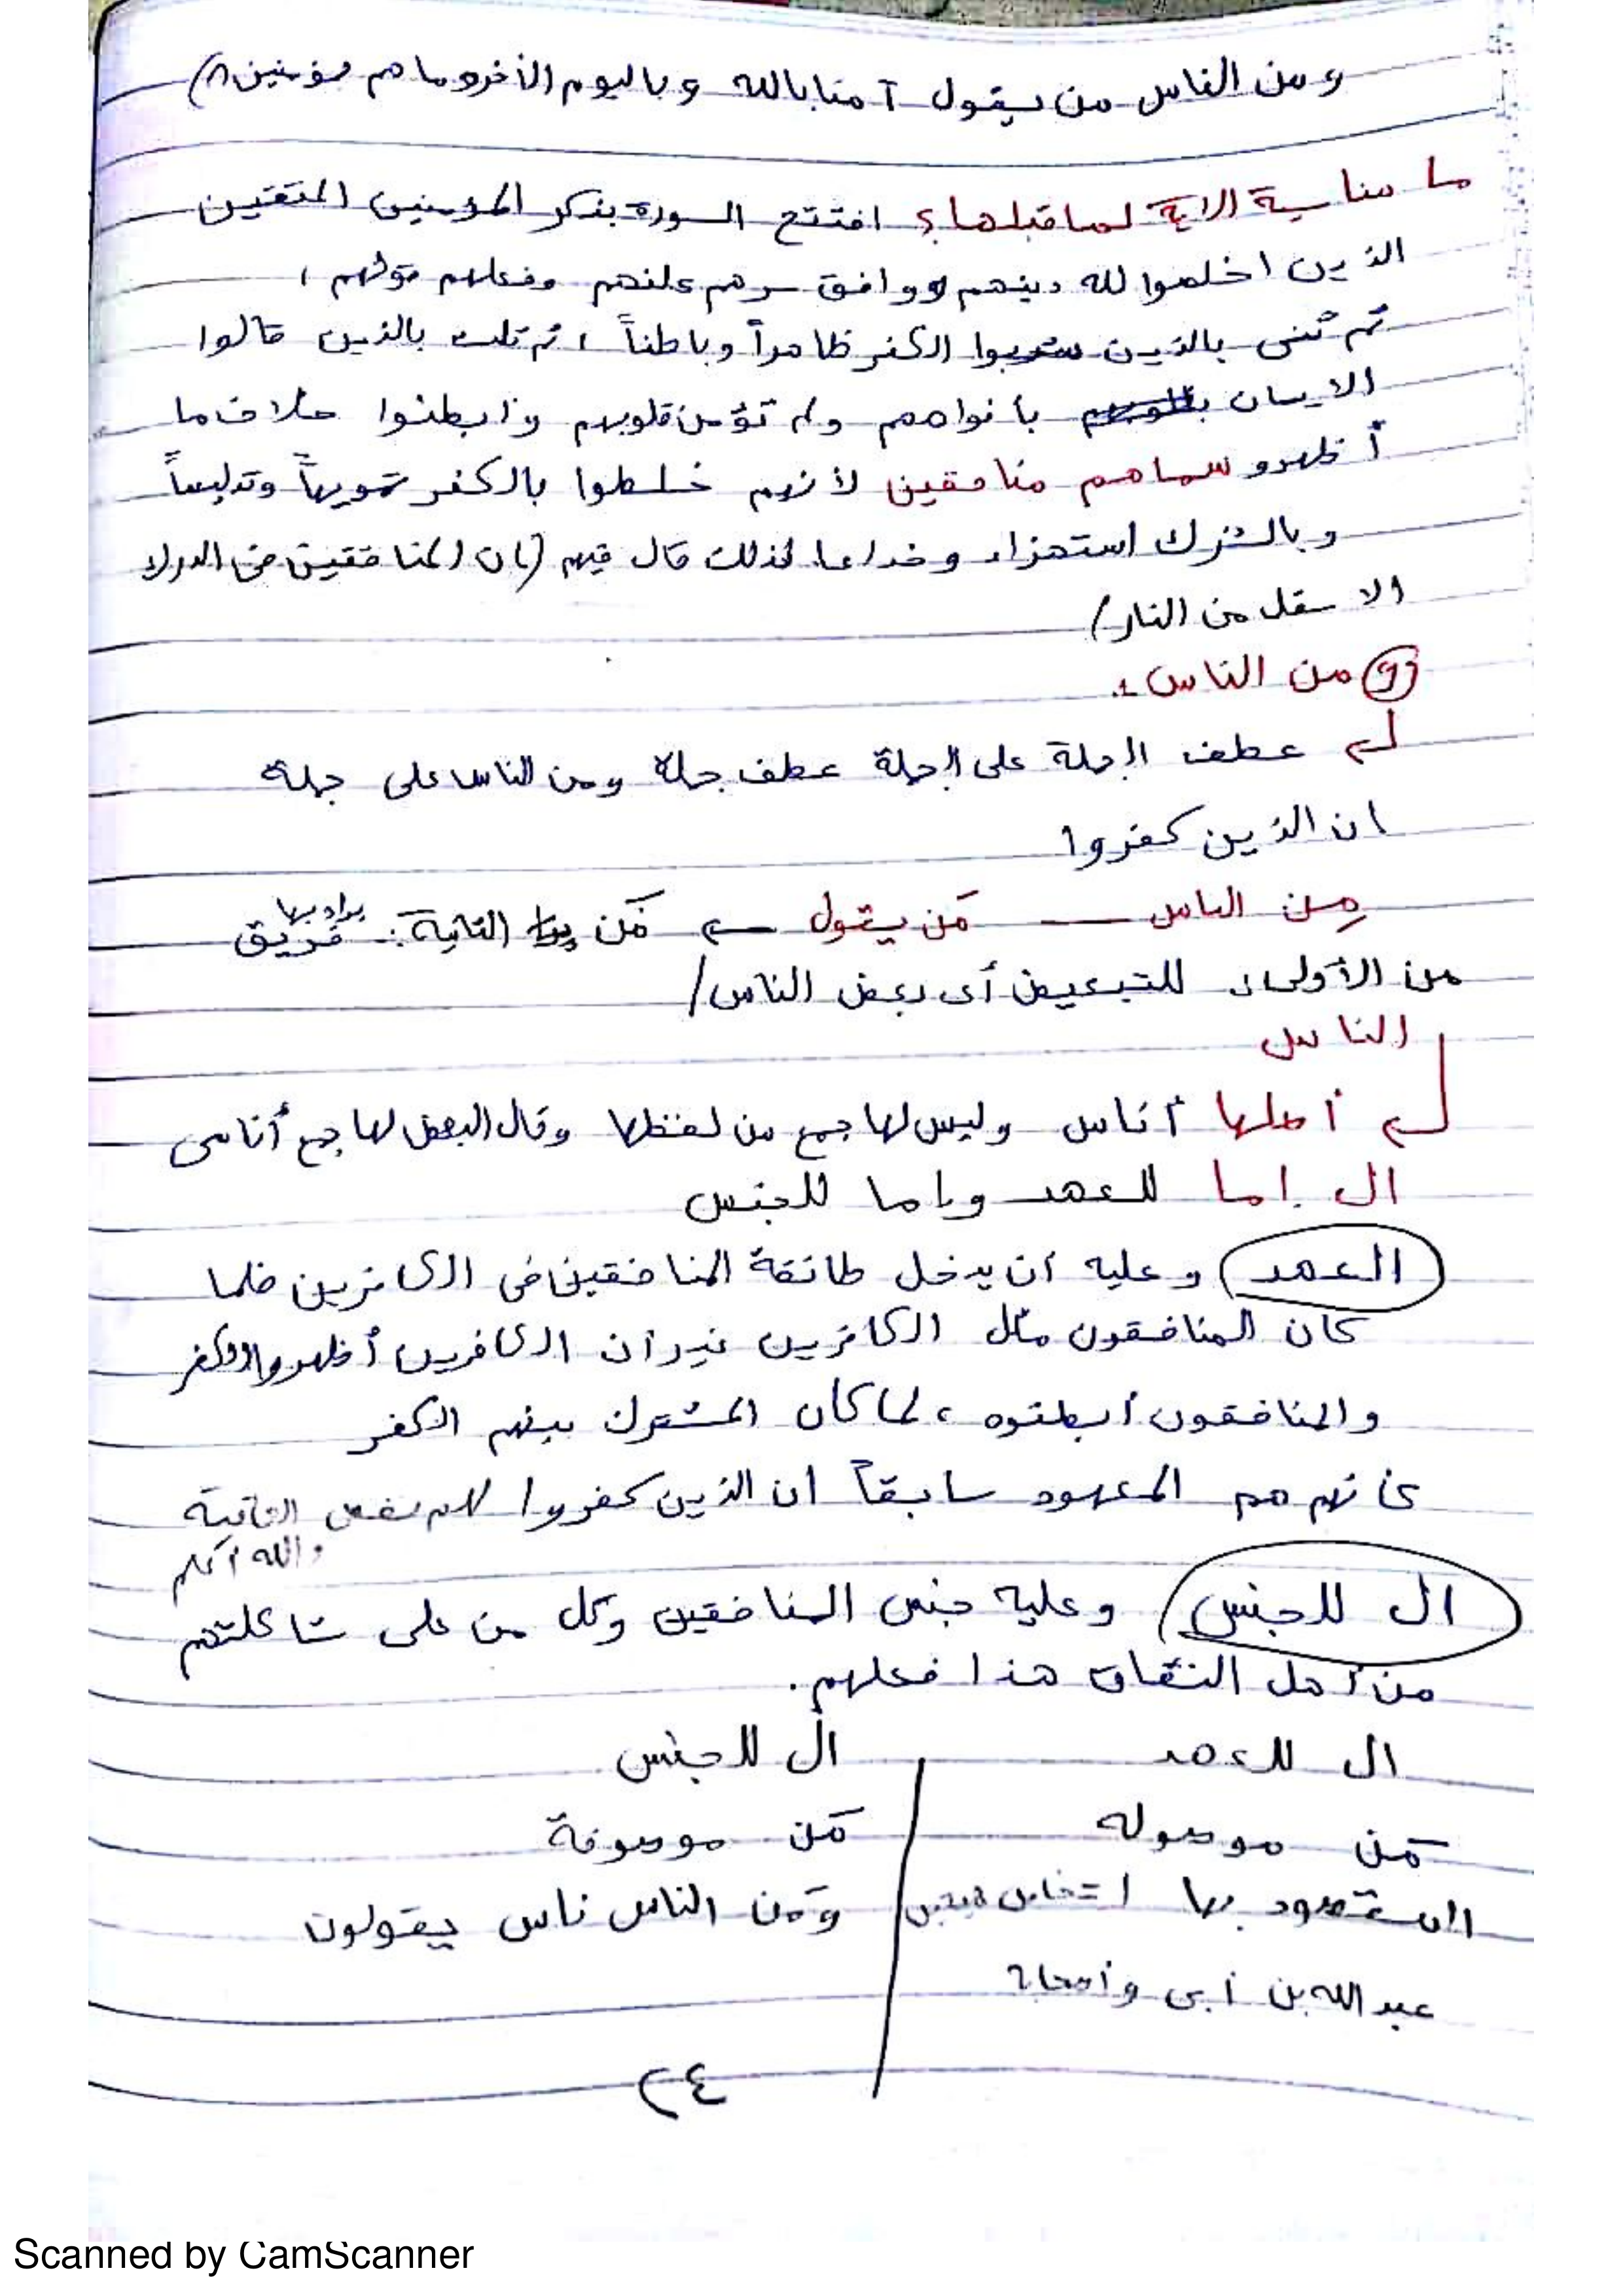 ومن الناس من يقول آمنا بالله وباليوم الآخر وما هم بمؤمنين ٨)
ما مناسبة الاية لما قبلها؟ افتتح السورة بذكر المؤمنين المتقين
الذين اخلصوا لله دينهم ووافق سرهم علنهم وفعلهم قولهم ،
ثم ثنى بالذين الكفر ظاهراً وباطناً ، ثم ثلث بالذين قالوا
الايمان بافواههم ولم تؤمن قلوبهم وابطنوا خلاف ما
أظهرو سماهم منافقين لأنهم خلطوا بالكفر تمويهاً وتدليساً
وبالشرك استهزاء وخداعا لذلك قال فيهم (إن المنافقين في الدرك
الاسفل من النار)
(و) من الناس :
عطف الجملة على الجملة عطف جملة ومن الناس على جملة
ان الذين كفروا
مِن الناس — مَن يقول ← مَن الثانية: يراد بها فريق
من الأولى للتبعيض أى بعض الناس/
الناس
أصلها أناس وليس لها جمع من لفظها وقال البعض لها جمع أناسى
ال إما للعهد وإما للجنس
العهد) وعليه أن يدخل طائفة المنافقين في الكافرين فلما
كان المنافقون مثل الكافرين غير ان الكافرين أظهروا الكفر
والمنافقون أبطنوه ، لما كان المشترك بينهم الكفر
كأنهم هم المعهود سابقاً ان الذين كفروا الثانية
والله أعلم
ال للجنس) وعليه جنس المنافقين وكل من على شاكلتهم
من أهل النفاق هذا فعلهم.
ال للعهد ال للجنس
مَن موصوله مَن موصوفة
المقصود بها اشخاص معينين ومَن الناس ناس يقولون
عبد الله بن أبى وأصحابه
٢٤
Scanned by CamScanner